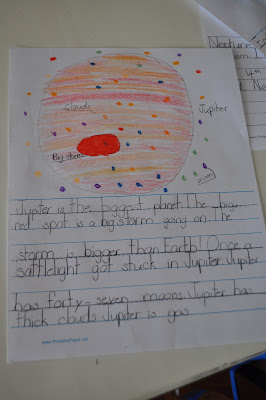 Neptune
clouds
Jupiter
Big storm
Jupiter is the biggest planet. The big
red spot is a big storm going on. The
storm is bigger than Earth! Once a
sattlelight got stuck in Jupiter. Jupiter
has forty-seven moons Jupiter has
thick clouds. Jupiter is gas
www.PrintablePaper.net